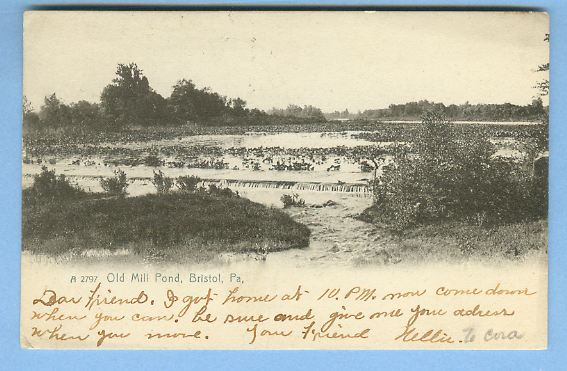 A 2797, Old Mill Pond, Bristol, Pa,
Dear friend. I got home at 10. P.M. now come down
when you can. be sure and give me you adress
when you move. Your Friend Nellie. To Cora